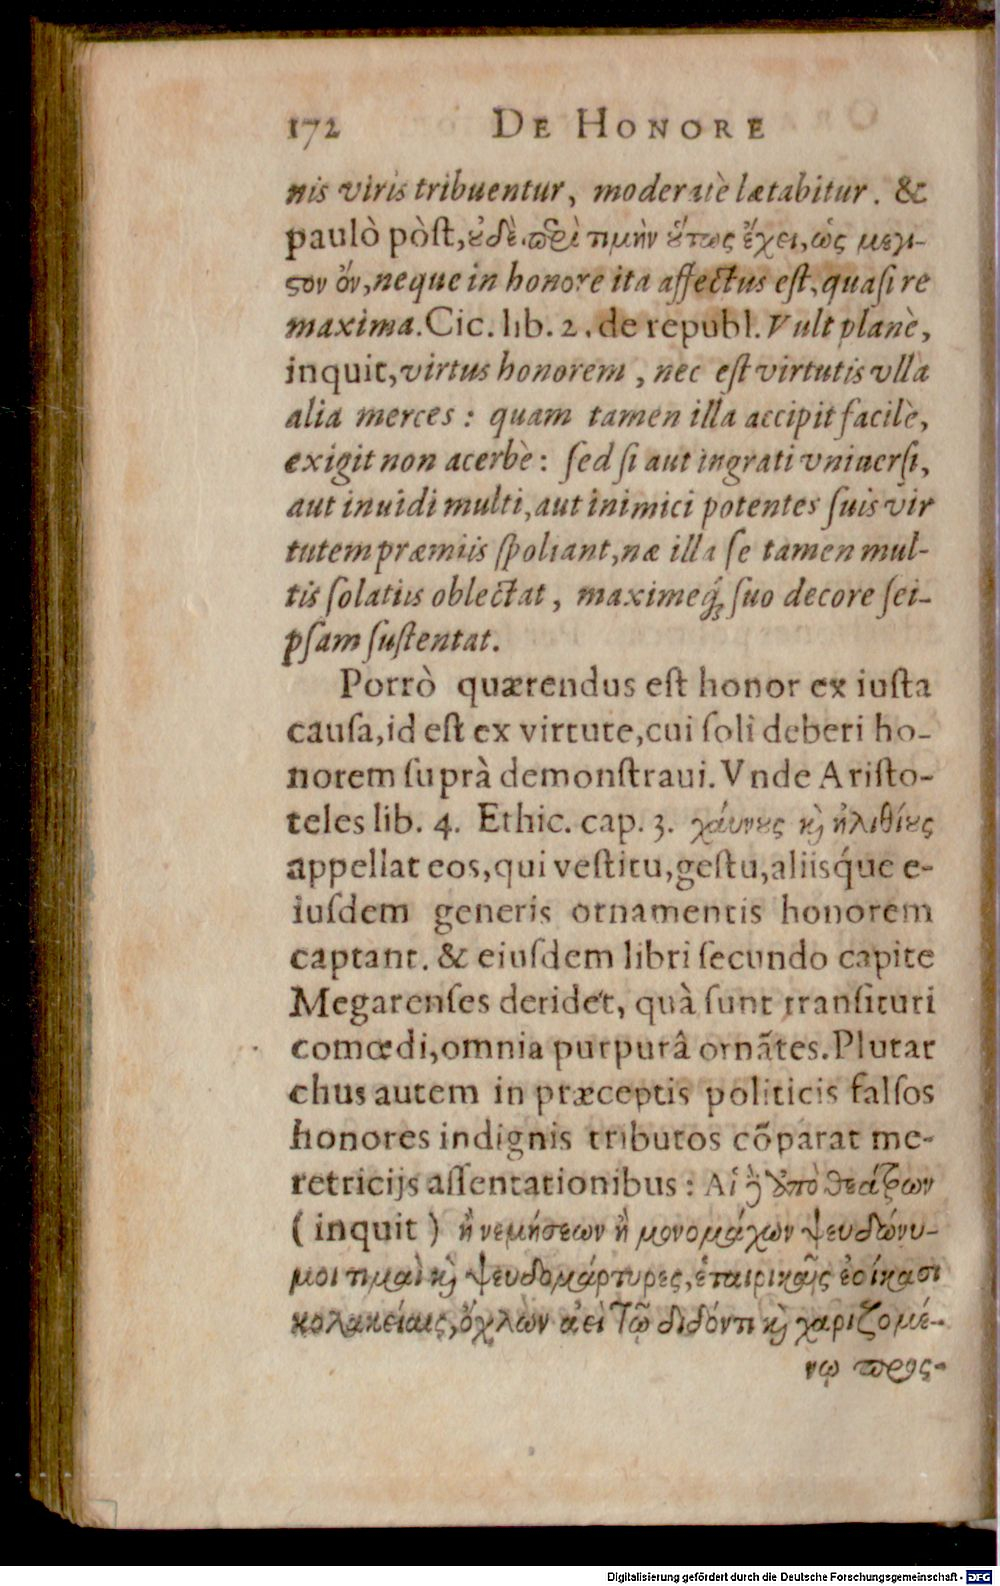 172 DE HONORE
nis viris tribuentur, moderatè lætabitur. &
paulò pòſt, ȣ̓δὲ περὶ τιμὴν ȣ̔́τως ἔχει, ὡς μεγι-
ϛον ὄν, neque in honore ita affectus eſt, quaſi re
maxima. Cic. lib. 2. de republ. Vult planè,
inquit, virtus honorem, nec eſt virtutis vlla
alia merces: quam tamen illa accipit facilè,
exigit non acerbè: ſed ſi aut ingrati vniuerſi,
aut inuidi multi, aut inimici potentes ſuis vir
tutem præmiis ſpoliant, næ illa ſe tamen mul-
tis ſolatiis oblectat, maximeq́; ſuo decore ſei-
pſam ſuſtentat.
Porrò quærendus eſt honor ex iuſta
cauſa, id eſt ex virtute, cui ſoli deberi ho-
norem ſuprà demonſtraui. Vnde Ariſto-
teles lib. 4. Ethic. cap. 3. χάυνȣς κ̀ ἠλιθίȣς
appellat eos, qui veſtitu, geſtu, aliisq́ue e-
iuſdem generis ornamentis honorem
captant. & eiuſdem libri ſecundo capite
Megarenſes deridet, quà ſunt tranſituri
comœdi, omnia purpurâ ornãtes. Plutar
chus autem in præceptis politicis falſos
honores indignis tributos cõparat me-
retricijs aſſentationibus: Αἱ δ' ὑπὸ θεάτρων
(inquit) ἢ νεμήσεων ἢ μονομάχων ψευδώνυ-
μοι τιμαὶ κ̀ ψευδομάρτυρες, ἑταιρικαῖς ἐοίκασι
κολακείαις, ὄχλων ἀεὶ τῷ διδόντι κ̀ χαριζομέ-
νῳ προς-
Digitalisierung gefördert durch die Deutsche Forschungsgemeinschaft - DFG